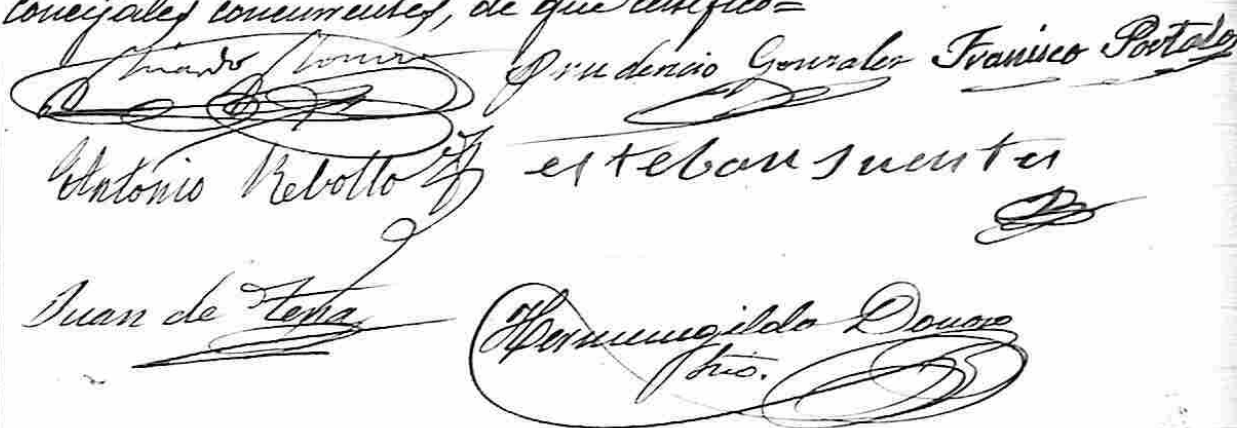 concejales concurrentes, de que certifico=
Prudencio Gonzalez Francisco Portalo
Antonio Rebollo esteban fuentes
Juan de Tena
Hermenegildo Donoso
Srio.